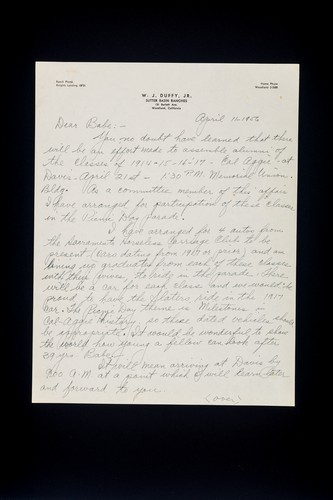 Ranch Phone
Knights Landing
Home Phone
Woodland
W. J. DUFFY, JR.
SUTTER BASIN RANCHES
Woodland, California
April 16-1956
Dear Babe:-
You no doubt have learned that there
will be an effort made to assemble alumni of
the classes of 1914-15-16-17 - Cal Aggie - at
Davis - April 21st - 1:30 P.M. Memorial Union
Bldg. As a committee member of this affair
I have arranged for participation of these classes
in the Picnic Day parade.
I have arranged for 4 autos from
the Sacramento Horseless Carriage Club to be
present (cars dating from 1917 or prior) and am
lining up graduates from each of these classes
with their wives, to ride in the parade. There
will be a car for each class and we would be
proud to have the Slaters ride in the 1917
car. The Picnic Day theme is Milestones in
Cal-Aggie History, so these dated vehicles should
be appropriate. It would be wonderful to show
the world how young a fellow can look after
39 yrs. Babe!
It will mean arriving at Davis by
9:00 A.M. at a point which I will learn later
and forward to you.
(over)